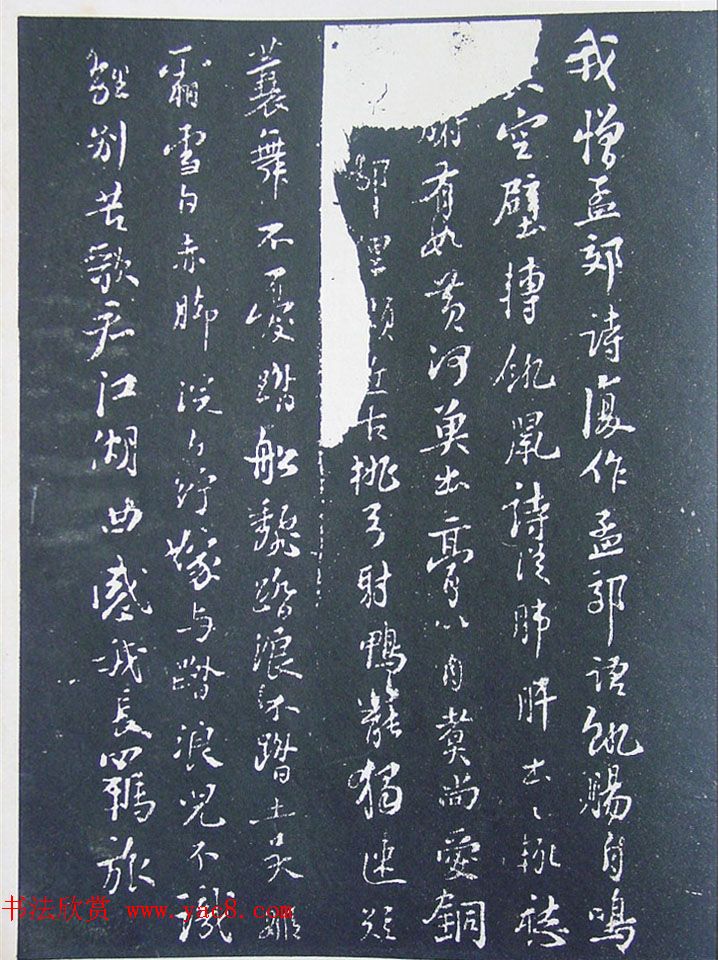 我憎孟郊詩復作孟郊語飢腸自鳴
空壁轉飢鼠詩從肺腑出〻輒愁
腑有如黃河魚出膏以自煑尚愛銅
鄙俚頗近古桃弓射鴨罷獨速短
蓑舞不憂踏船飜踏浪不踏土吳姬
霜雪白赤脚浣白紵嫁与踏浪兒不識
離別苦歌君江湖曲感我長羈旅
书法欣赏 www.yac8.com